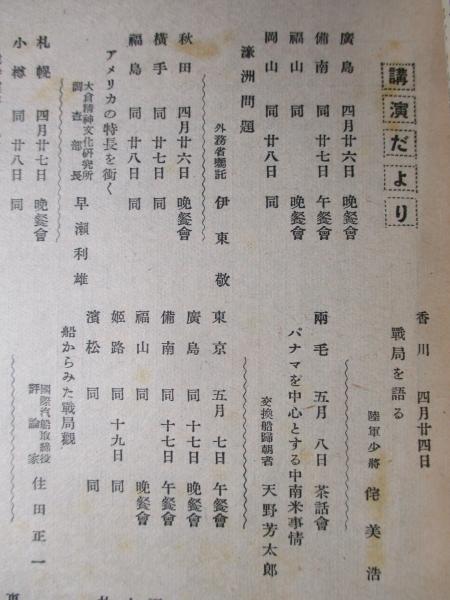 講演だより
香川 四月廿四日
戰局を語る
陸軍少將 佗美浩
兩毛 五月八日 茶話會
パナマを中心とする中南米事情
交換船歸朝者 天野芳太郎
東京 五月七日 午餐會
廣島 同十七日 晩餐會
備南 同十七日 午餐會
福山 同 晩餐會
姬路 同十九日 同
濱松 同 同
船からみた戰局觀
國際汽船取締役
評論家 住田正一
廣島 四月廿六日 晩餐會
備南 同廿七日 午餐會
福山 同 晩餐會
岡山 同廿八日 同
濠洲問題
外務省囑託 伊東敬
秋田 四月廿六日 晩餐會
橫手 同廿七日 同
福島 同廿八日 同
アメリカの特長を衝く
大倉精神文化硏究所
調査部長 早瀨利雄
札幌 四月廿七日 晩餐會
小樽 同廿八日 同